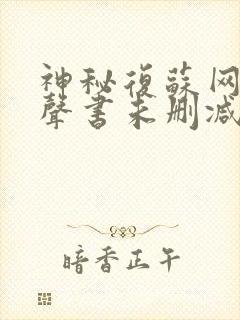 神秘復蘇网
聲書未刪减
暗香正午